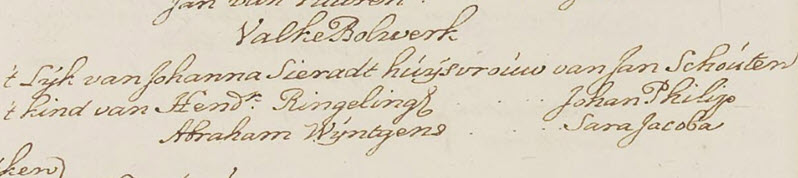 Jan van
Valke Bolwerk
't Lÿk van Johanna Sieradt húÿsvroúw van Jan Schoúten
't kind van Hendr. Ringeling . . . Johan Philip
Abraham Wÿntgens . . . Sara Jacoba
ken)